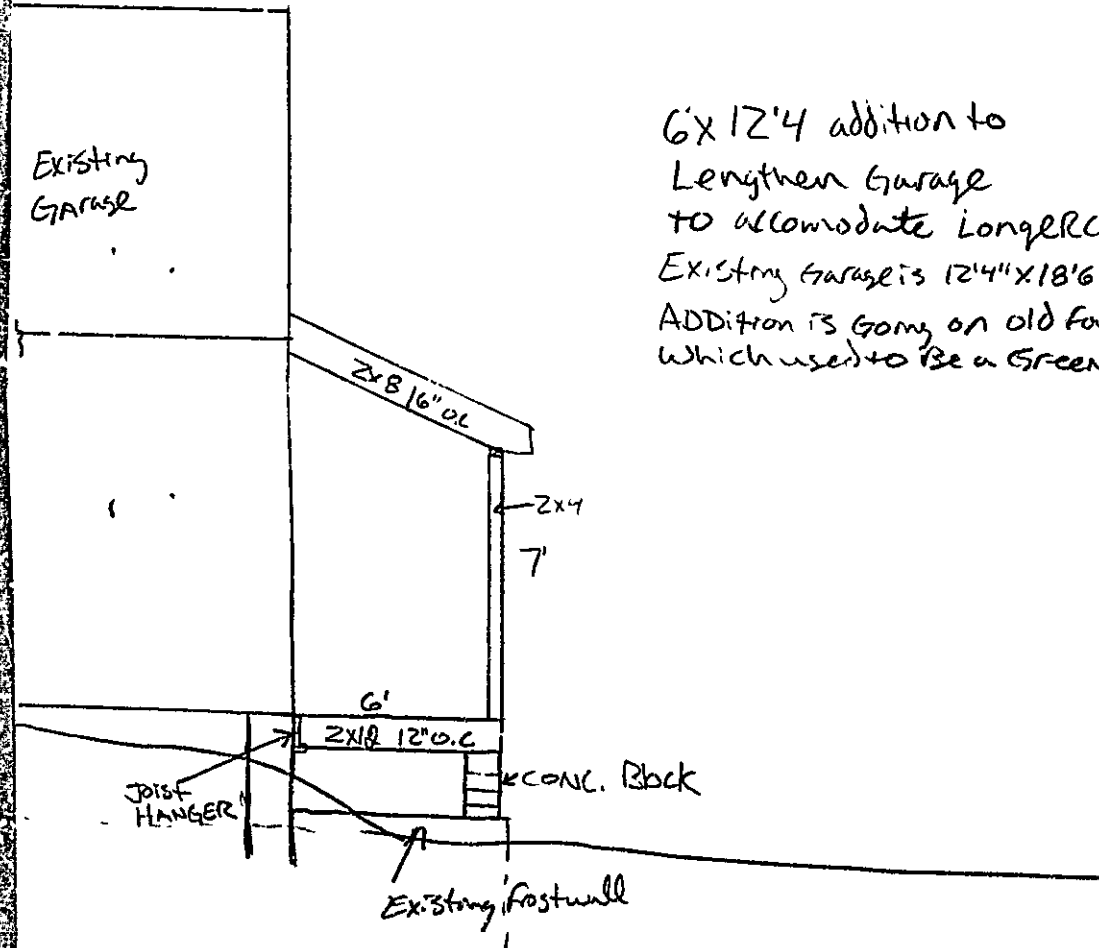 6'x 12'4 addition to
Lengthen Garage
to accomodate Longer
Existing Garage is 12'4" x 18'6
ADDition is Going on old
which used to Be a
Existing
GArage
2x8 16" O.C
2x4
7'
6'
2x12 12" O.C
Joist
HANGER
CONC. Block
Existing frostwall